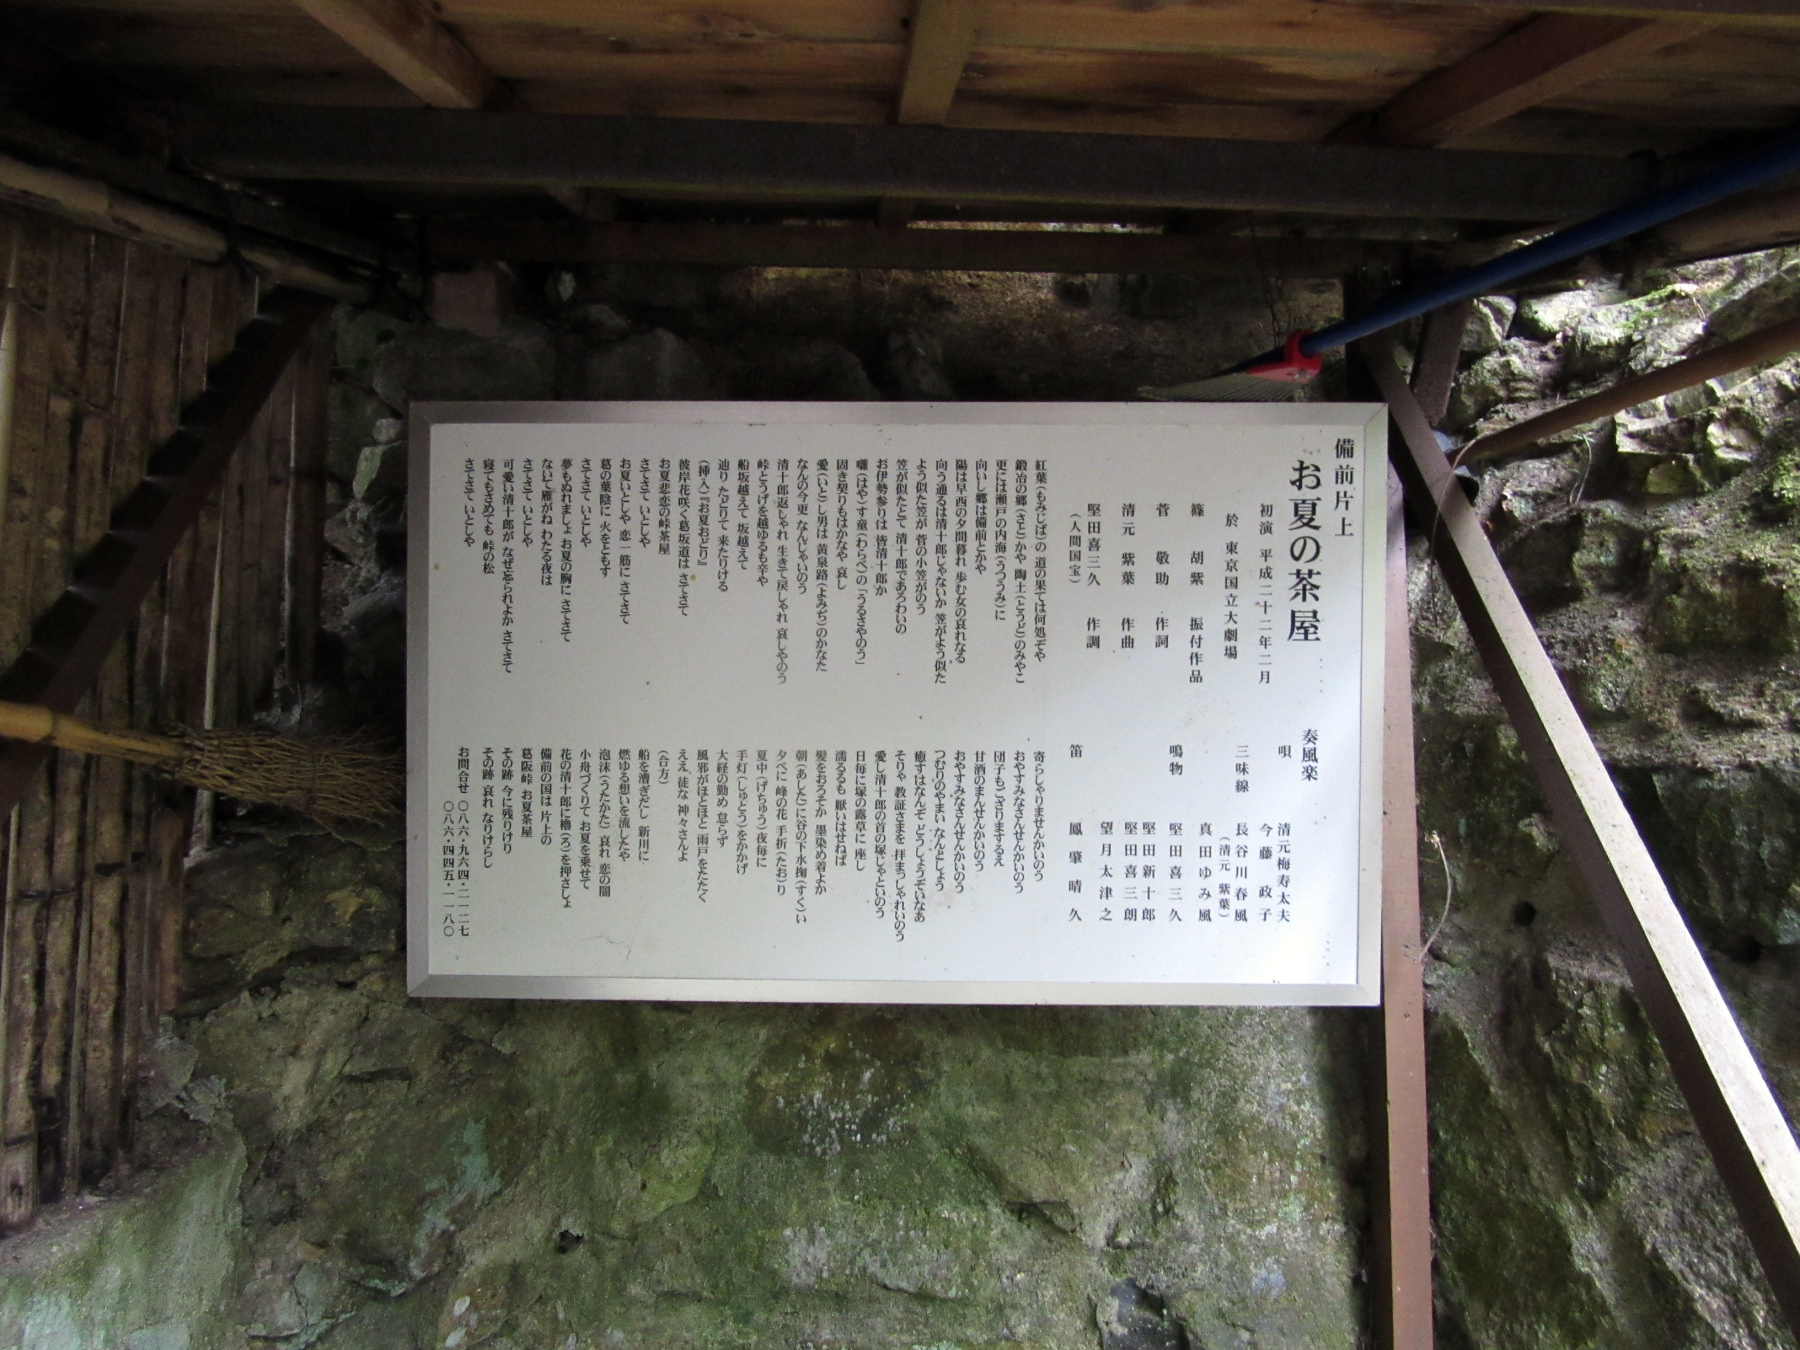 備前片上
お夏の茶屋
初演 平成二十二年二月
於 東京国立大劇場
篠 胡紫 振付作品
菅 敬助 作詞
清元 紫葉 作曲
堅田喜三久 作調
(人間国宝)
紅葉(もみじば)の 道の果ては何処ぞや
鍛冶の郷(さと)かや 陶土(とうど)のみやこ
更には瀬戸の内海(うつうみ)に
向いし郷は備前とかや
陽は早西の夕間暮れ 歩む女の哀れなる
向う通るは清十郎じゃないか 笠がよう似た
よう似た笠が 菅の小笠がのう
笠が似たとて 清十郎であろわいの
お伊勢参りは 皆清十郎か
囃(はや)す童(わらべ)の「うるさやのう」
固き契りもはかなや 哀し
愛(いと)し男は 黄泉路(よみぢ)のかなた
なんの今更 なんじゃいのう
清十郎返しゃれ 生きて戻しゃれ 哀しやのう
峠とうげを越ゆるも辛や
船坂越えて 坂越えて
辿り たどりて 来たりける
(挿入)『お夏おどり』
彼岸花咲く葛坂道は さてさて
お夏悲恋の峠茶屋
さてさて いとしや
お夏いとしや 恋一筋に さてさて
葛の葉陰に 火をともす
さてさて いとしや
夢もぬれましょ お夏の胸に さてさて
ないて雁がね わたる夜は
さてさて いとしや
可愛い清十郎が なぜ忘らりょか さてさて
寝てもさめても 峠の松
さてさて いとしや
奏風楽
唄 清元梅寿太夫
今藤 政子
三味線 長谷川春風
(清元 紫葉)
真田ゆみ風
鳴物 堅田喜三久
堅田新十郎
堅田喜三朗
望月太津之
笛 鳳聲晴久
寄らしゃりませんかいのう
おやすみなさんせんかいのう
団子もござりまするえ
甘酒のまんせんかいのう
おやすみなさんせんかいのう
つむりのやまい なんとしょう
癒すはなんぞ どうしょうぞいなあ
そりゃ 教証さまを 拝まっしゃれいのう
愛し清十郎の首の塚じゃといのう
日毎に塚の露草に 座し
濡るるも 厭いはせねば
髪をおろそか 墨染め着よか
朝(あした)に谷の下水掬(すく)い
夕べに 峰の花 手折(たお)り
夏中(げちゅう)夜毎に
手灯(しゅとう)をかかげ
大経の勤め 怠らず
風邪がほとほと 雨戸をたたく
ええ 徒な 神々さんよ
(合方)
船を漕ぎだし 新川に
燃ゆる想いを 流したや
泡沫(うたかた) 哀れ 恋の闇
小舟づくりて お夏を乗せて
花の清十郎に櫓(ろ)を押さしょ
備前の国は 片上の
葛阪峠 お夏茶屋
その跡 今に残りけり
その跡 哀れ なりけらし
お問合せ 〇八六・九六四・二一二七
〇八六・四四五・一一八〇